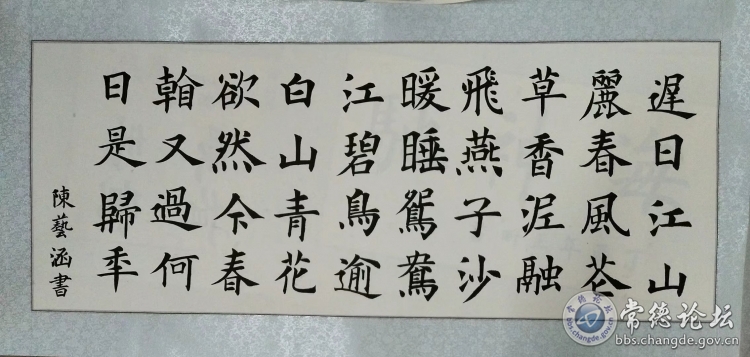 遅日江山
麗春風花
草香泥融
飛燕子沙
暖睡鴛鴦
江碧鳥逾
白山青花
欲然今春
看又過何
日是歸年
陳藝涵書
常德论坛
bbs.changde.gov.cn